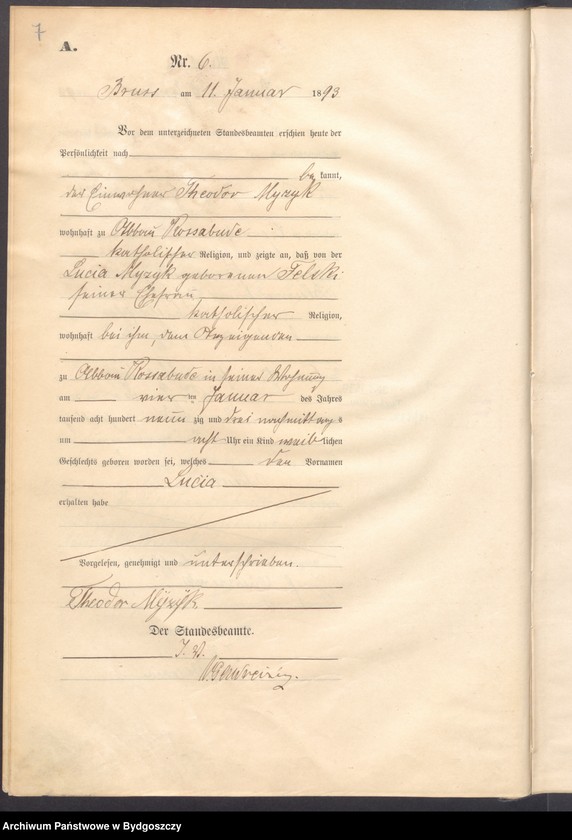 7
A.
Nr. 6.
Bruss am 11. Januar 1893
Vor dem unterzeichneten Standesbeamten erschien heute der
Persönlichkeit nach
be kannt,
der Einwohner Theodor Myzyk
wohnhaft zu Abbau Kossabude
katholischer Religion, und zeigte an, daß von der
Lucia Myzyk geborenen Felski
seiner Ehefrau
katholischer Religion,
wohnhaft bei ihm, dem Anzeigenden
zu Abbau Kossabude in seiner Wohnung
am vier ten Januar des Jahres
tausend acht hundert neun zig und drei nachmittags
um acht Uhr ein Kind weib lichen
Geschlechts geboren worden sei, welches den Vornamen
Lucia
erhalten habe
Vorgelesen, genehmigt und unterschrieben.
Theodor Myzyk
Der Standesbeamte.
I. V.
Archiwum Państwowe w Bydgoszczy